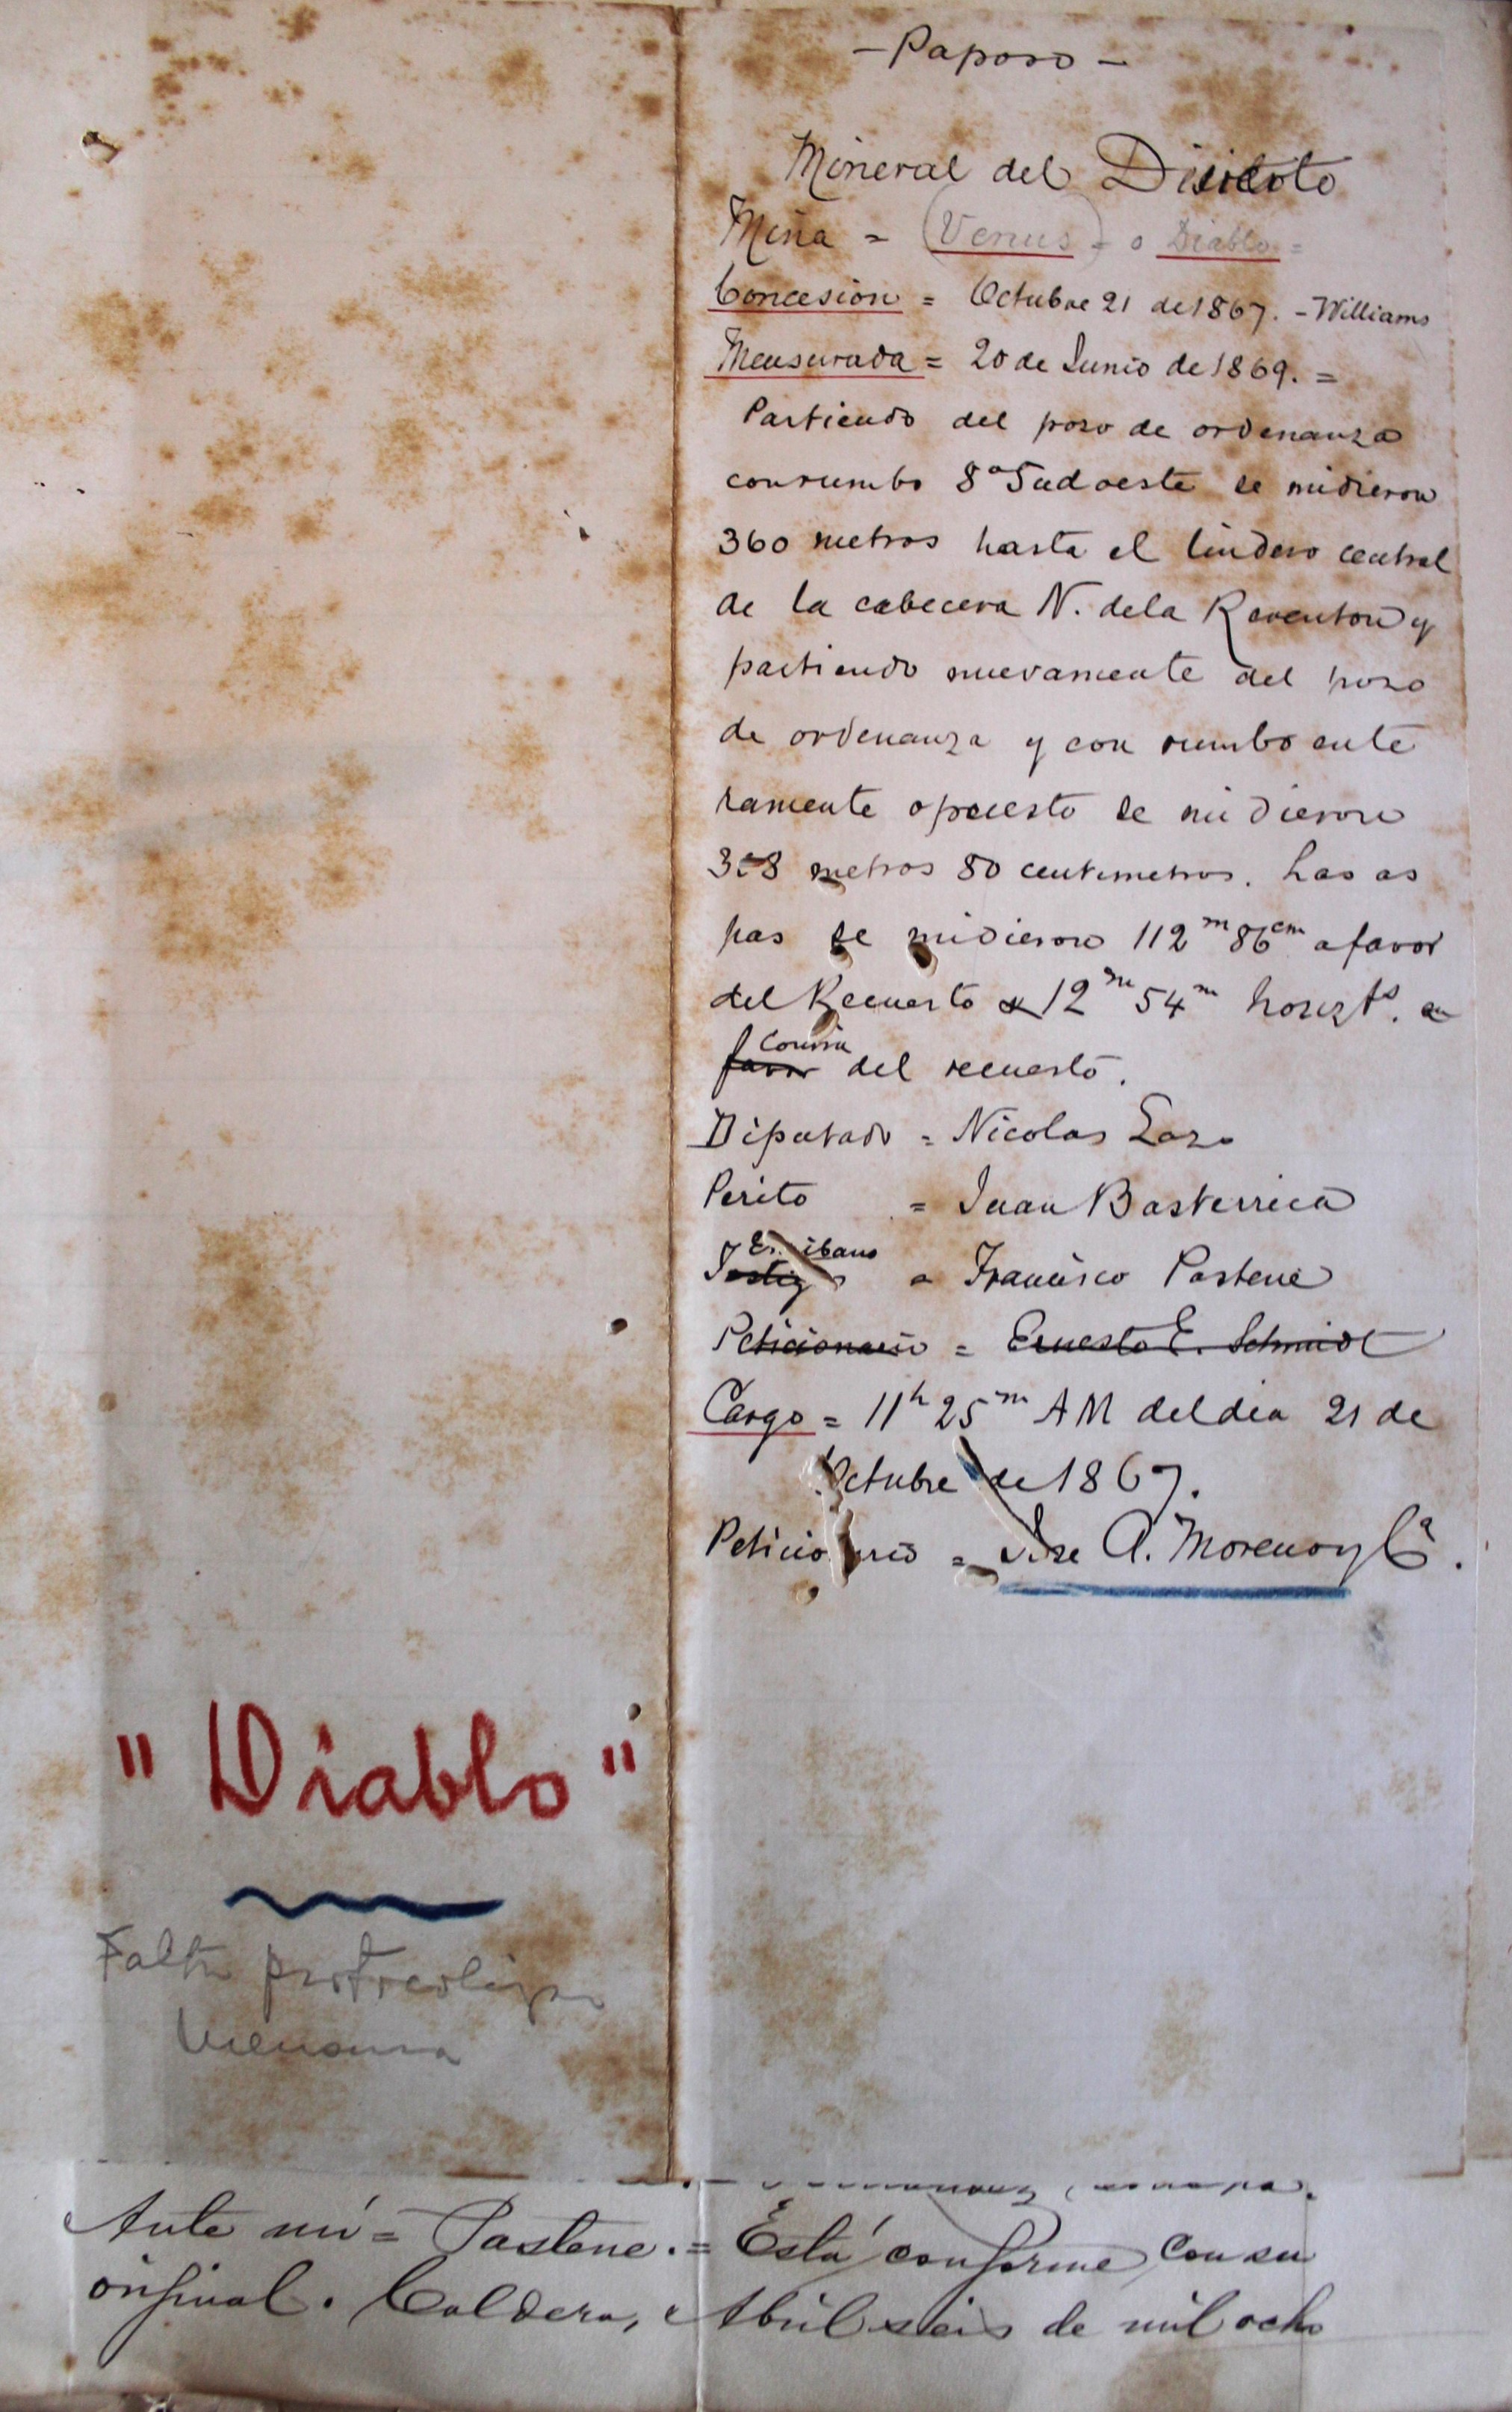 – Paposo –
Mineral del
Mina = (Venus) = o Diablo =
Concesion = Octubre 21 de 1867. – Williams
Mensurada = 20 de Junio de 1869. =
Partiendo del pozo de ordenanza
con rumbo 8° Sudoeste se midieron
360 metros hasta el lindero central
de la cabecera N. de la Reventon y
partiendo nuevamente del pozo
de ordenanza y con rumbo ente
ramente opuesto se midieron
metros 80 centimetros. Las as
pas se midieron 112 m 86 cm a favor
del Recuesto 12 m 54 m horizts. en
favor contra del recuesto.
Diputado = Nicolas Lazo
Perito = Juan Basterrica
Testigo Escribano = Francisco Pastene
Peticionario = Ernesto E. Schmidt
Cargo = 11h 25m AM del dia 21 de
Octubre de 1867.
Peticionario = Jose A. Moreno y Ca.
"Diablo"
Falta protocolizar
mensura
Ante mí = Pastene. = Está conforme con su
original. Caldera, Abril seis de mil ocho